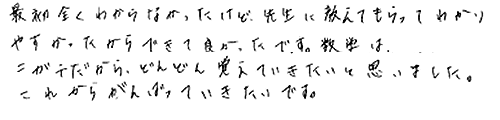 最初全くわからなかったけど、先生に教えてもらってわかり
やすかったからできて良かったです。数学は、
ニガテだから、どんどん覚えていきたいと思いました。
これからがんばっていきたいです。